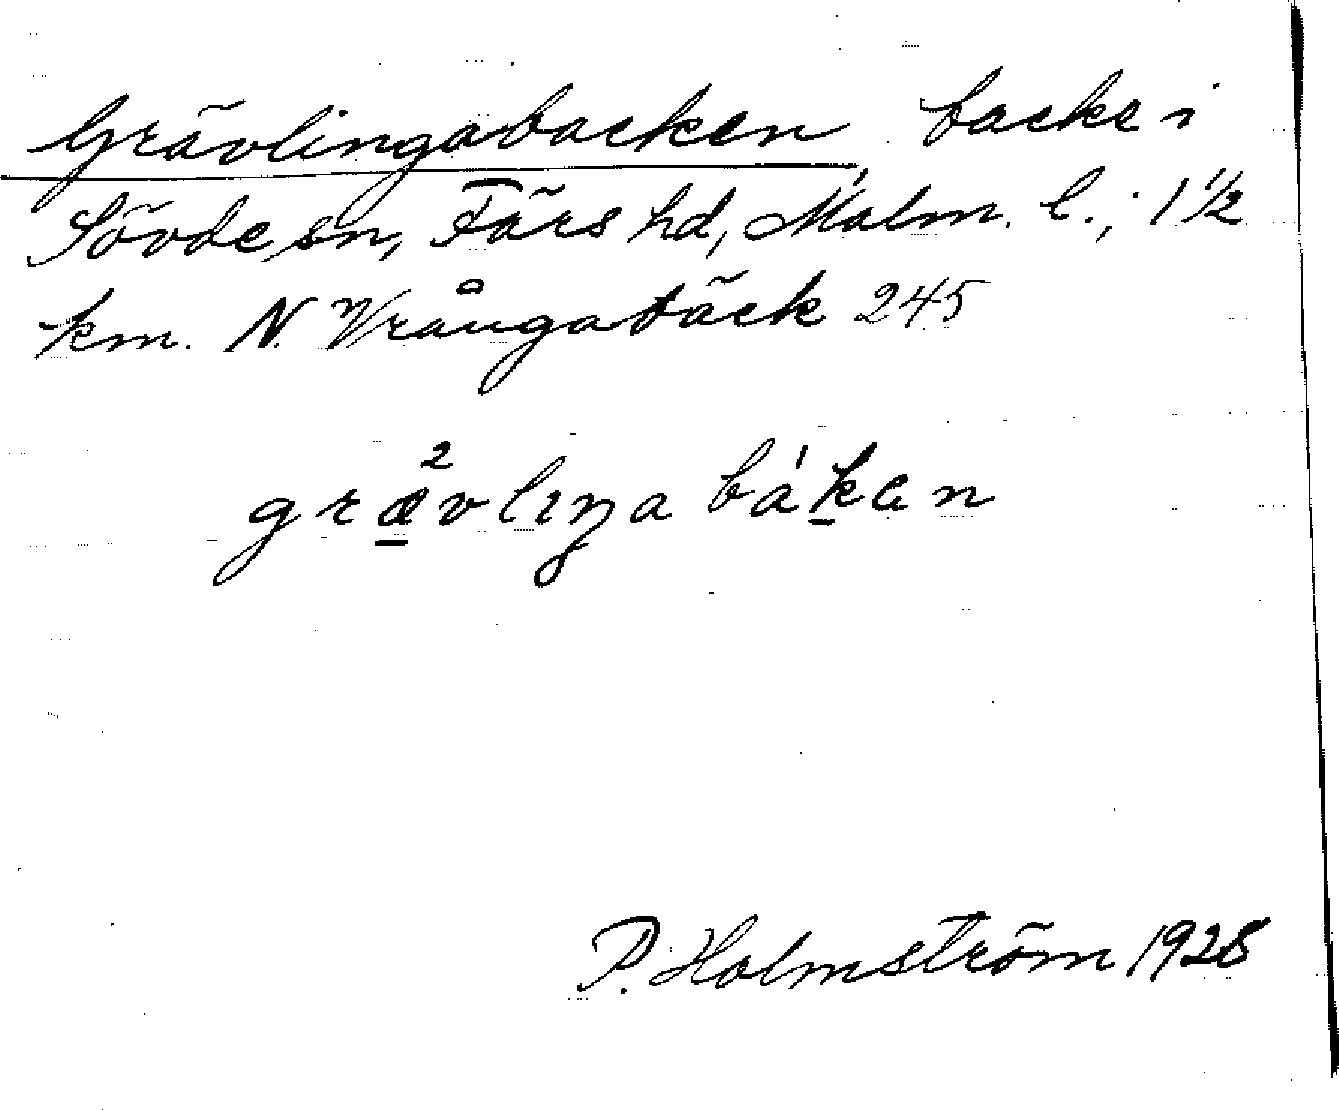 Grävlingabacken, backe i
Sövde sn, Färs hd, Malm. l.; 1 1/2
km. N. Vrångabäck 245
græ²vlıŋa bá'kan
P. Holmström 1928